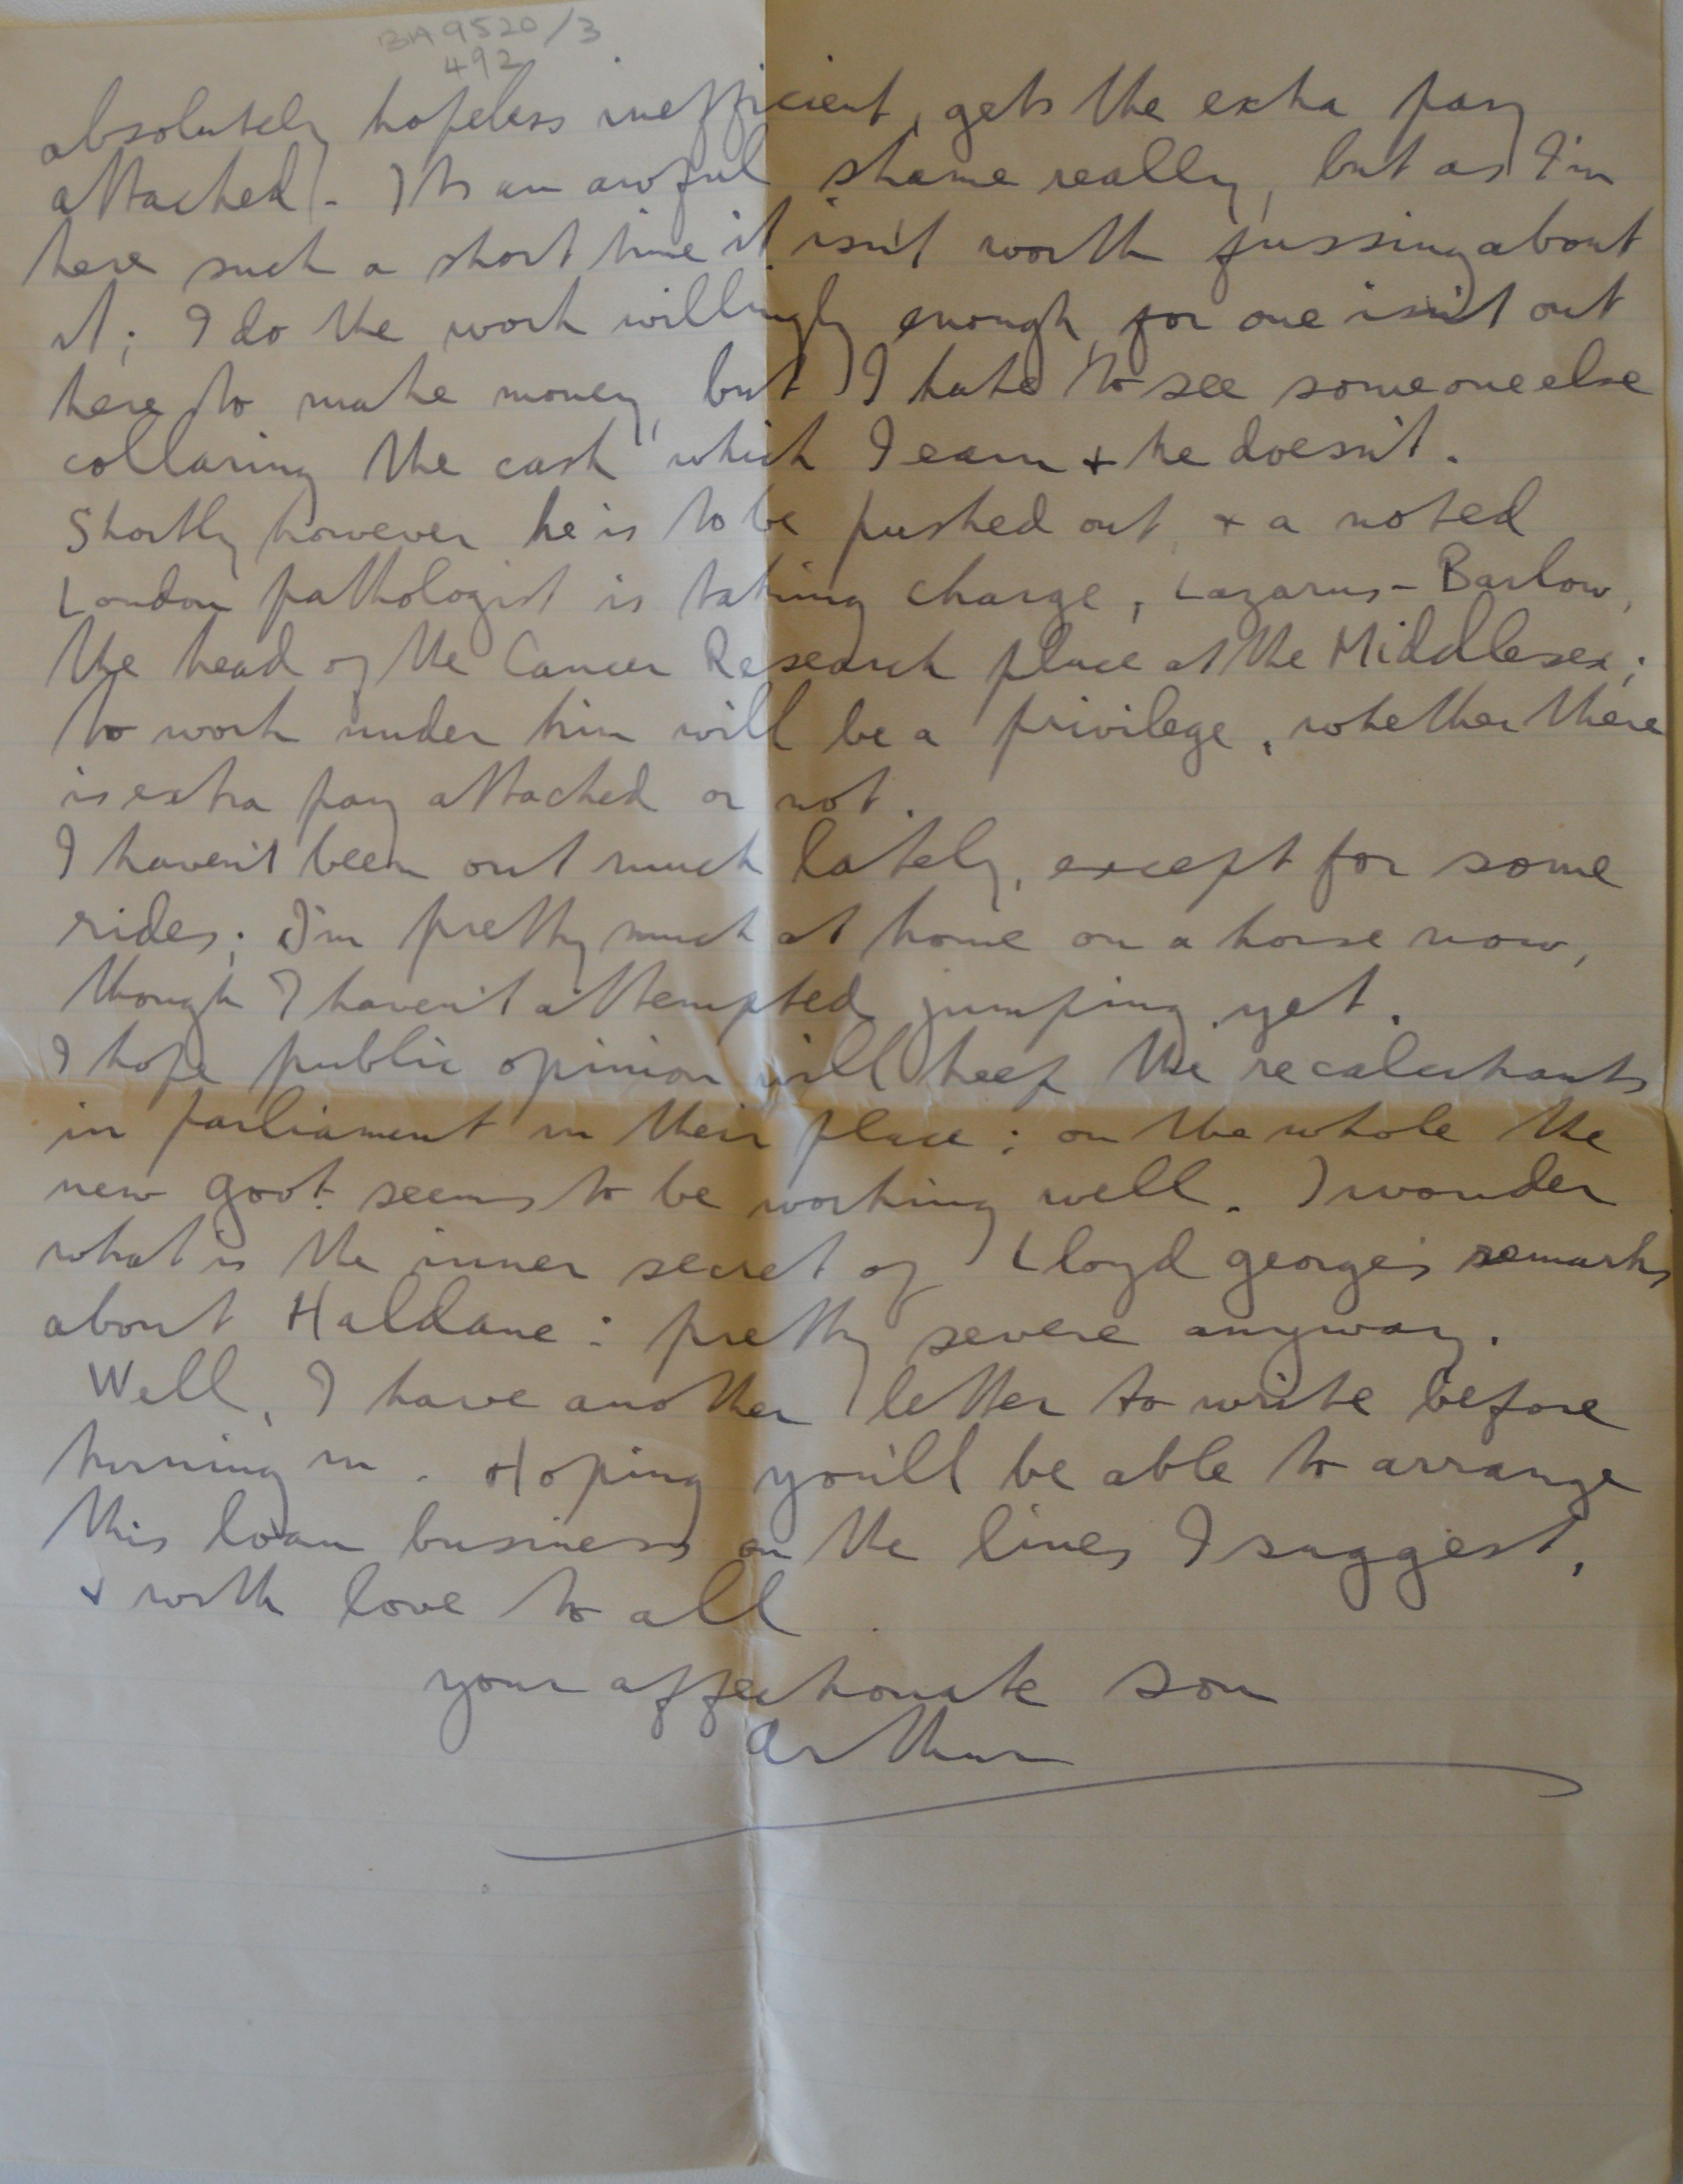 BA9520/3
492
absolutely hopeless inefficient, gets the extra pay
attached). Its an awful shame really, but as I'm
here such a short time it isn't worth fussing about
it; I do the work willingly enough, for one isn't out
here to make money, but I hate to see someone else
collaring the cash which I earn + he doesn't.
Shortly however he is to be pushed out, + a noted
London pathologist is taking charge, Lazarus-Barlow,
the head of the Cancer Research place at the Middlesex;
to work under him will be a privilege, whether there
is extra pay attached or not.
I haven't been out much lately, except for some
rides; I'm pretty much at home on a horse now,
though I haven't attempted jumping yet.
I hope public opinion will keep the recalcitrants
in parliament in their place; on the whole the
new govt. seems to be working well. I wonder
what is the inner secret of Lloyd George's remarks
about Haldane: pretty severe anyway.
Well, I have another letter to write before
turning in. Hoping you'll be able to arrange
this loan business on the lines I suggest,
+ with love to all
your affectionate son
Arthur